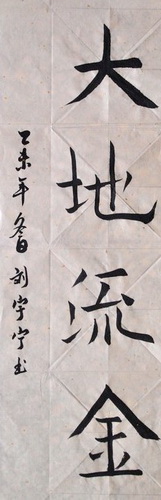 大地流金
乙未年 刘宇宁书